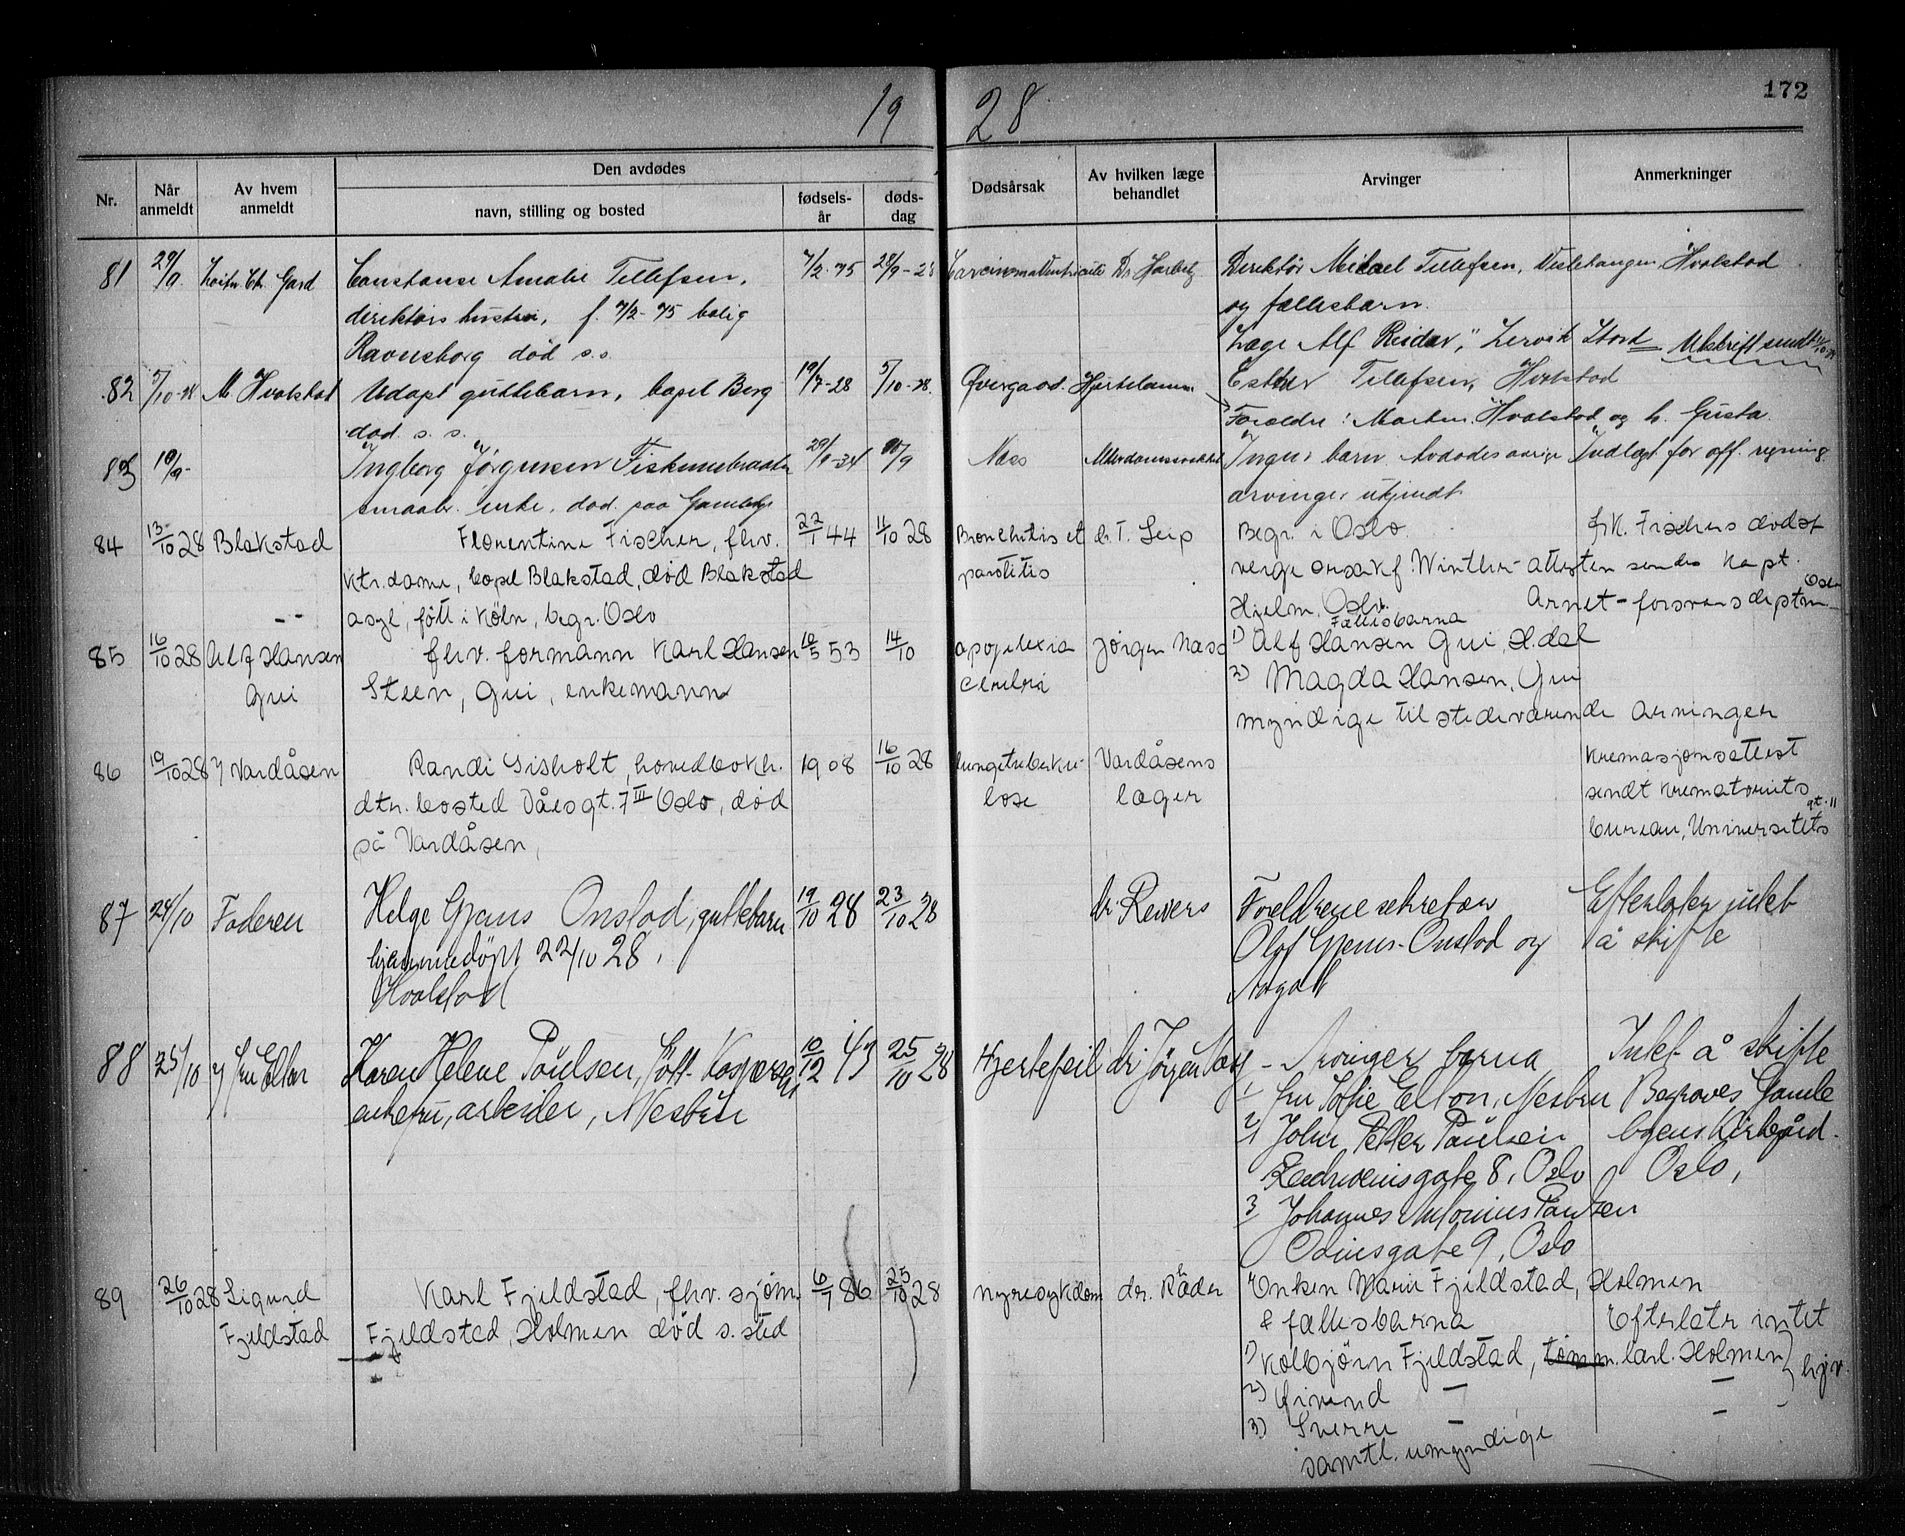 1928
172
Nr.
Når anmeldt
Av hvem anmeldt
Den avdødes
navn, stilling og bosted
fødsels-år
døds-dag
Dødsårsak
Av hvilken læge behandlet
Arvinger
Anmerkninger
81 29/9. Gard Constanse Amalie Tellefsen, 7/2-75 28/9-28 Direktør Mikael Tellefsen, Hvalstad
direktørs hustru, f. 7/2-75 bolig og fællesbarn.
Ravnsborg død s.s. Læge Alf Reidar, Lervik Stord Utskrift sendt
82 5/10-28 M Hvalstad Udøpt guttebarn, bopel Berg 19/7-28 5/10-28. Øvergaard Ester Tellefsen, Hvalstad
død s. s. Foræld­re: Morten Hvalstad og h. Gusta.
83 10/9- Ingborg Jørgensen 10/9 Næs Ingen barn. Avdødes øvrige Indlagt for off. regning.
smaabr. enke, død paa Gamleby arvinger ukjendt.
84 13/10 28 Blakstad Florentine Fischer, fhv. 22/1 44 11/10 28 Bronchitis et dr. T. Leip Begr. i Oslo. frk. Fischers dødsf
ktr.dame, bopel Blakstad, død Blakstad parotitis verge orsakf Winther-attesten sendes kapt.
asyl, fött i Köln, begr. Oslo Hjelm, Oslo. Arnet-forsvarsdeptm. Oslo
Fællesbarna
85 16/10 28 Alf Hansen fhv. formann Karl Hansen 10/5 53 14/10 apoplexia Jørgen Næss 1) Alf Hansen Gui, H.dal
Gui Steen, Gui, enkemann cerebri 2) Magda Hansen, Gui
myndige tilstedeværende arvinger
86 19/10 28 Vardåsen Randi Gisholt, hovedbokh. 1908 16/10 28 lungetuberku- Vardåsens kremasjonsattest
dtr. bosted Vålsgt. 7 III Oslo, død lose læger sendt krematoriets
på Vardåsen, bureau, Universitets gt. 11
87 24/10 Faderen Helge Gjems Onstad, guttebarn 19/10 28 23/10 28 dr. Revers Foreldrene sekretær Efterlater intet
hjemmedöpt 22/10 28. Olaf Gjems-Onstad og å skifte
Hvalstad
88 25/10 v/ fru Elton Karen Helene Paulsen, fött Kaspersen 10/12 43 25/10 28 Hjertefeil dr Jörgen Næss Arvinger barna Intet å skifte
enkefru, arbeider, Nesbru 1 fru Sofie Elton, Nesbru Begraves Gamle
2) John Petter Paulsen byens Kirkegård.
gate 8, Oslo Oslo,
3 Johannes Antonius Paulsen
Odinsgate 9, Oslo
89 26/10 28 Sigurd Karl Fjeldstad, fhv. sjøm. 6/1 86 25/10 28 nyresykdom dr. Råder 1) Enken Marie Fjeldstad, Holmen
Fjeldstad Fjeldstad, Holmen død s. sted & fællesbarna Efterlatr intet
1) Kolbjørn Fjeldstad, tömm. lærl. Holmen } hjv.
2) Eivind — —
3) Sverre — —
samtl. umyndige